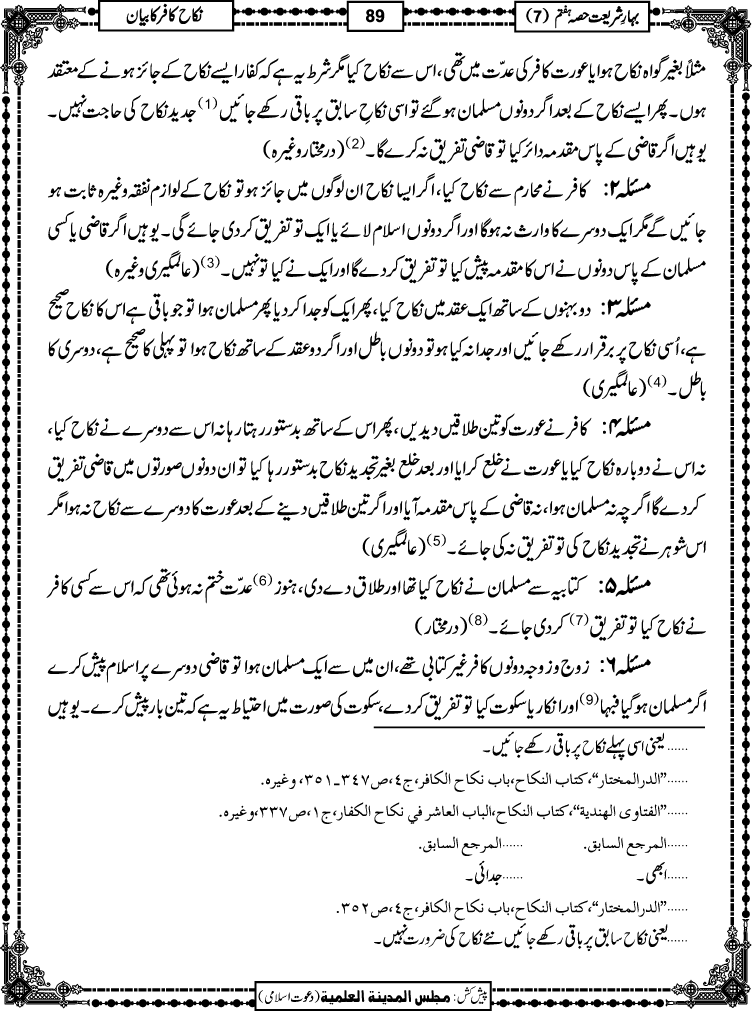 بہارِ شریعت حصہ ہفتم (7)
89
نکاح کافر کا بیان
مثلاً بغیر گواہ نکاح ہوا یا عورت کافر کی عدّت میں تھی، اس سے نکاح کیا مگر شرط یہ ہے کہ کفار ایسے نکاح کے جائز ہونے کے معتقد
ہوں۔ پھر ایسے نکاح کے بعد اگر دونوں مسلمان ہوگئے تو اسی نکاحِ سابق پر باقی رکھے جائیں (1) جدید نکاح کی حاجت نہیں۔
یوہیں اگر قاضی کے پاس مقدمہ دائر کیا تو قاضی تفریق نہ کرے گا۔ (2) (درمختار وغیرہ)
مسئلہ ۲: کافر نے محارم سے نکاح کیا، اگر ایسا نکاح ان لوگوں میں جائز ہو تو نکاح کے لوازم نفقہ وغیرہ ثابت ہو
جائیں گے مگر ایک دوسرے کا وارث نہ ہوگا اور اگر دونوں اسلام لائے یا ایک تو تفریق کر دی جائے گی۔ یوہیں اگر قاضی یا کسی
مسلمان کے پاس دونوں نے اس کا مقدمہ پیش کیا تو تفریق کر دے گا اور ایک نے کیا تو نہیں۔ (3) (عالمگیری وغیرہ)
مسئلہ ۳: دو بہنوں کے ساتھ ایک عقد میں نکاح کیا، پھر ایک کو جدا کر دیا پھر مسلمان ہوا تو جو باقی ہے اس کا نکاح صحیح
ہے، اُسی نکاح پر برقرار رکھے جائیں اور جدا نہ کیا ہو تو دونوں باطل اور اگر دو عقد کے ساتھ نکاح ہوا تو پہلی کا صحیح ہے، دوسری کا
باطل۔ (4) (عالمگیری)
مسئلہ ۴: کافر نے عورت کو تین طلاقیں دیدیں، پھر اس کے ساتھ بدستور رہتا رہا نہ اس سے دوسرے نے نکاح کیا،
نہ اس نے دوبارہ نکاح کیا یا عورت نے خلع کرایا اور بعد خلع بغیر تجدید نکاح بدستور رہا کیا تو ان دونوں صورتوں میں قاضی تفریق
کر دے گا اگرچہ نہ مسلمان ہوا، نہ قاضی کے پاس مقدمہ آیا اور اگر تین طلاقیں دینے کے بعد عورت کا دوسرے سے نکاح نہ ہوا مگر
اس شوہر نے تجدید نکاح کی تو تفریق نہ کی جائے۔ (5) (عالمگیری)
مسئلہ ۵: کتابیہ سے مسلمان نے نکاح کیا تھا اور طلاق دے دی، ہنوز (6) عدّت ختم نہ ہوئی تھی کہ اس سے کسی کافر
نے نکاح کیا تو تفریق (7) کر دی جائے۔ (8) (درمختار)
مسئلہ ۶: زوج و زوجہ دونوں کافر غیر کتابی تھے، ان میں سے ایک مسلمان ہوا تو قاضی دوسرے پر اسلام پیش کرے
اگر مسلمان ہوگیا فبہا (9) اور انکار یا سکوت کیا تو تفریق کر دے، سکوت کی صورت میں احتیاط یہ ہے کہ تین بار پیش کرے۔ یوہیں
......یعنی اسی پہلے نکاح پر باقی رکھے جائیں۔
......"الدرالمختار"، کتاب النکاح، باب نکاح الکافر، ج٤، ص٣٤٧۔٣٥١، وغیرہ.
......"الفتاوی الهندية"، کتاب النکاح، الباب العاشر في نکاح الکفار، ج١، ص٣٣٧، وغیرہ.
......المرجع السابق. ......المرجع السابق.
......ابھی۔ ......جدائی۔
......"الدرالمختار"، کتاب النکاح، باب نکاح الکافر، ج٤، ص٣٥٢.
......یعنی نکاح سابق پر باقی رکھے جائیں نئے نکاح کی ضرورت نہیں۔
پیش کش: مجلس المدينة العلمية (دعوت اسلامی)